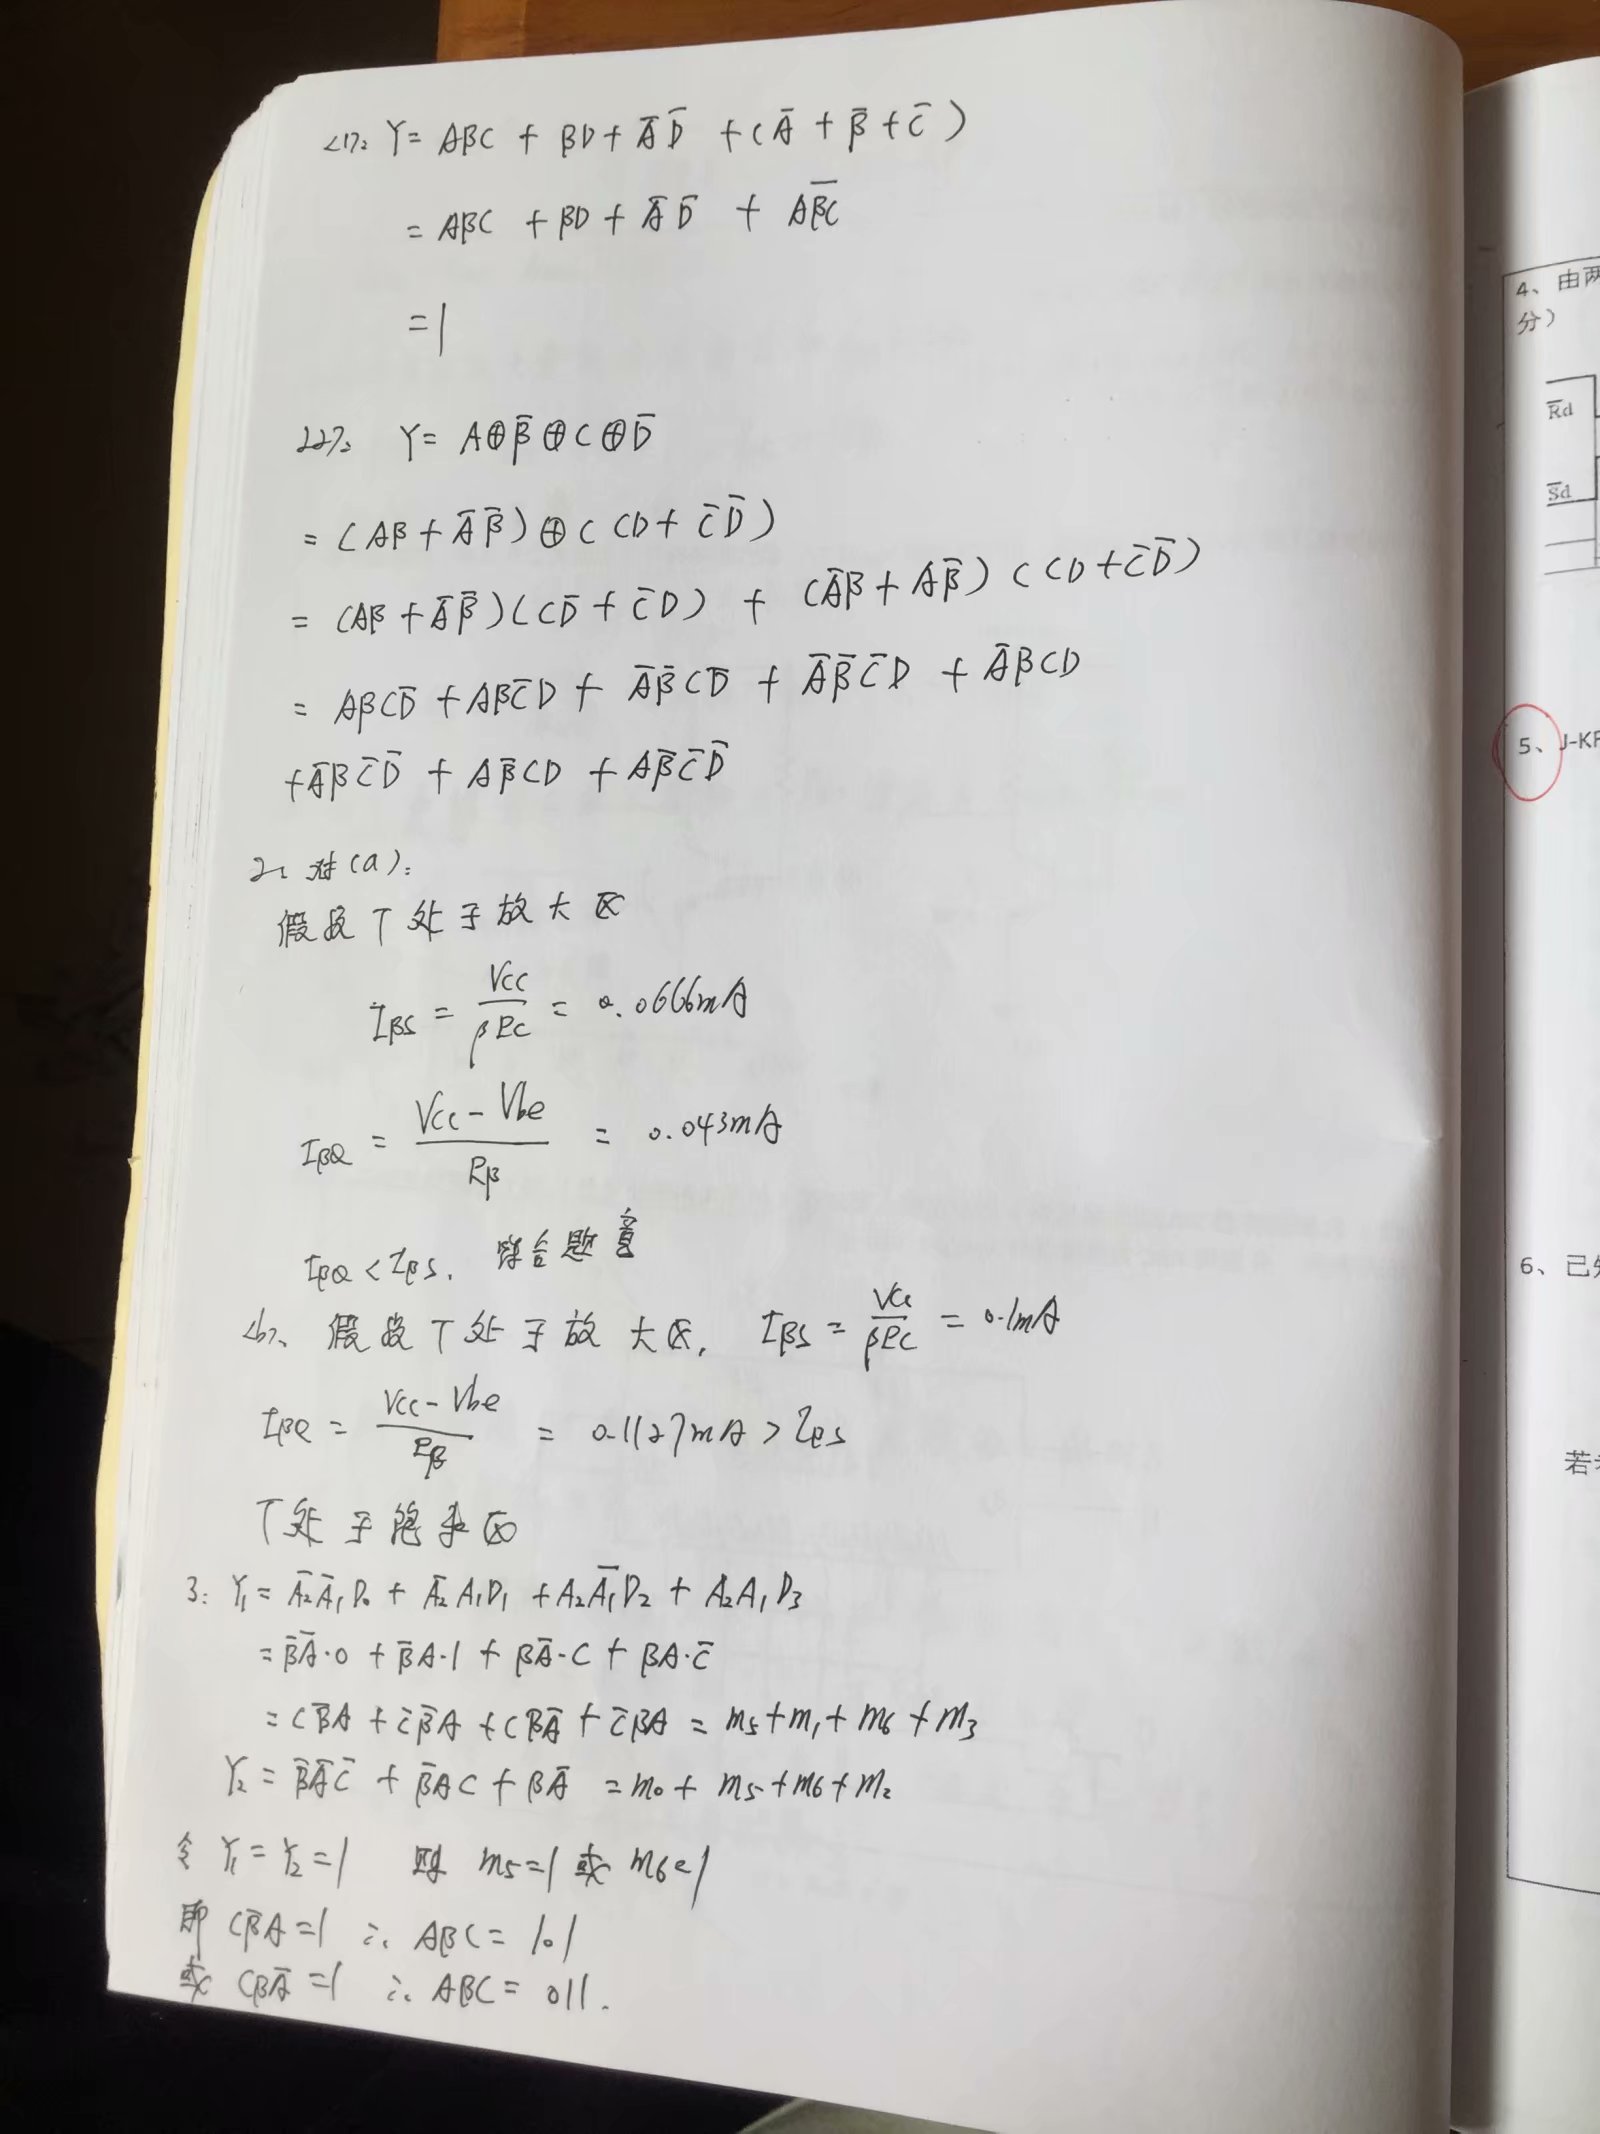 <1>: Y = ABC + BD + A̅ D̅ + (A̅ + B̅ + C̅)
= ABC + BD + A̅ D̅ + A̅B̅C̅
= 1
<2>: Y = A⊕B̅⊕C⊕D̅
= (AB + A̅B̅)⊕(CD + C̅D̅)
= (AB + A̅B̅)(CD̅ + C̅D) + (A̅B + AB̅)(CD + C̅D̅)
= ABCD̅ + ABC̅D + A̅B̅CD̅ + A̅B̅C̅D + A̅BCD
+ A̅BC̅D̅ + AB̅CD + AB̅C̅D̅
2: 对(a):
假设T处于放大区
IBS = Vcc / βRC = 0.0666mA
IBQ = Vcc - Vbe / RB = 0.043mA
IBQ < IBS, 符合题意
<b>、假设T处于放大区, IBS = Vcc / βRC = 0.1mA
IBQ = Vcc - Vbe / RB = 0.1127mA > IBS
T处于饱和区
3: Y₁ = A̅₂A̅₁D₀ + A̅₂A₁D₁ + A₂A̅₁D₂ + A₂A₁D₃
= B̅A̅·0 + B̅A·1 + BA̅·C + BA·C̅
= CB̅A + C̅B̅A + CBA̅ + C̅BA = m₅+m₁+m₆+m₃
Y₂ = B̅A̅C̅ + B̅AC + BA̅ = m₀+m₅+m₆+m₂
令 Y₁=Y₂=1 则 m₅=1 或 m₆=1
即 CB̅A=1 ∴ ABC=101
或 CBA̅=1 ∴ ABC=011.
4、由两
分)
R̅d
S̅d
5、J-KF
6、已知
若